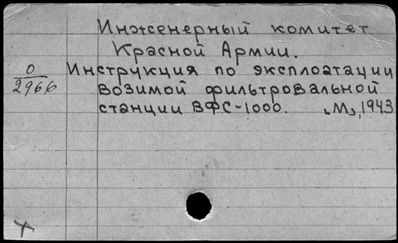 Инженерный комитет
Красной Армии.
О
2966
Инструкция по эксплоатации
возимой фильтровальной
станции ВФС-1000. [М], 1943